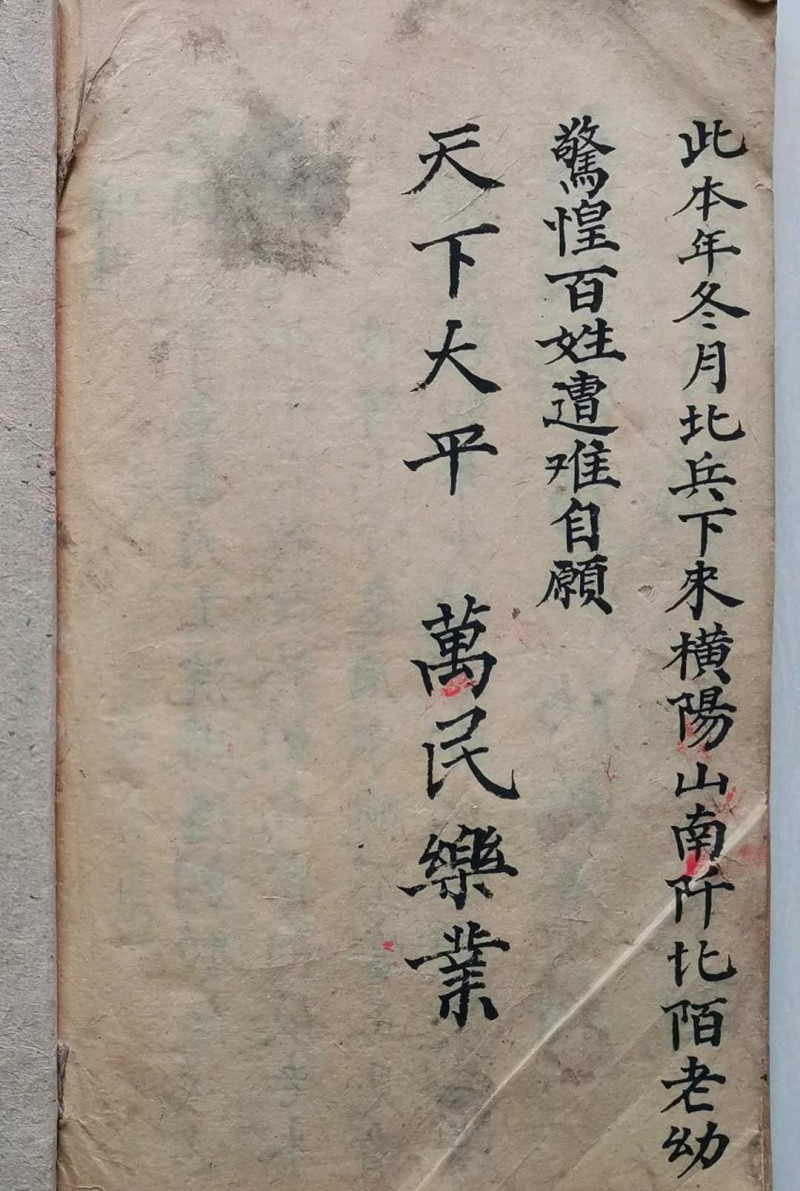 此本年冬月北兵下來橫陽山南阡北陌老幼
驚惶百姓遭难自願
天下大平 萬民樂業